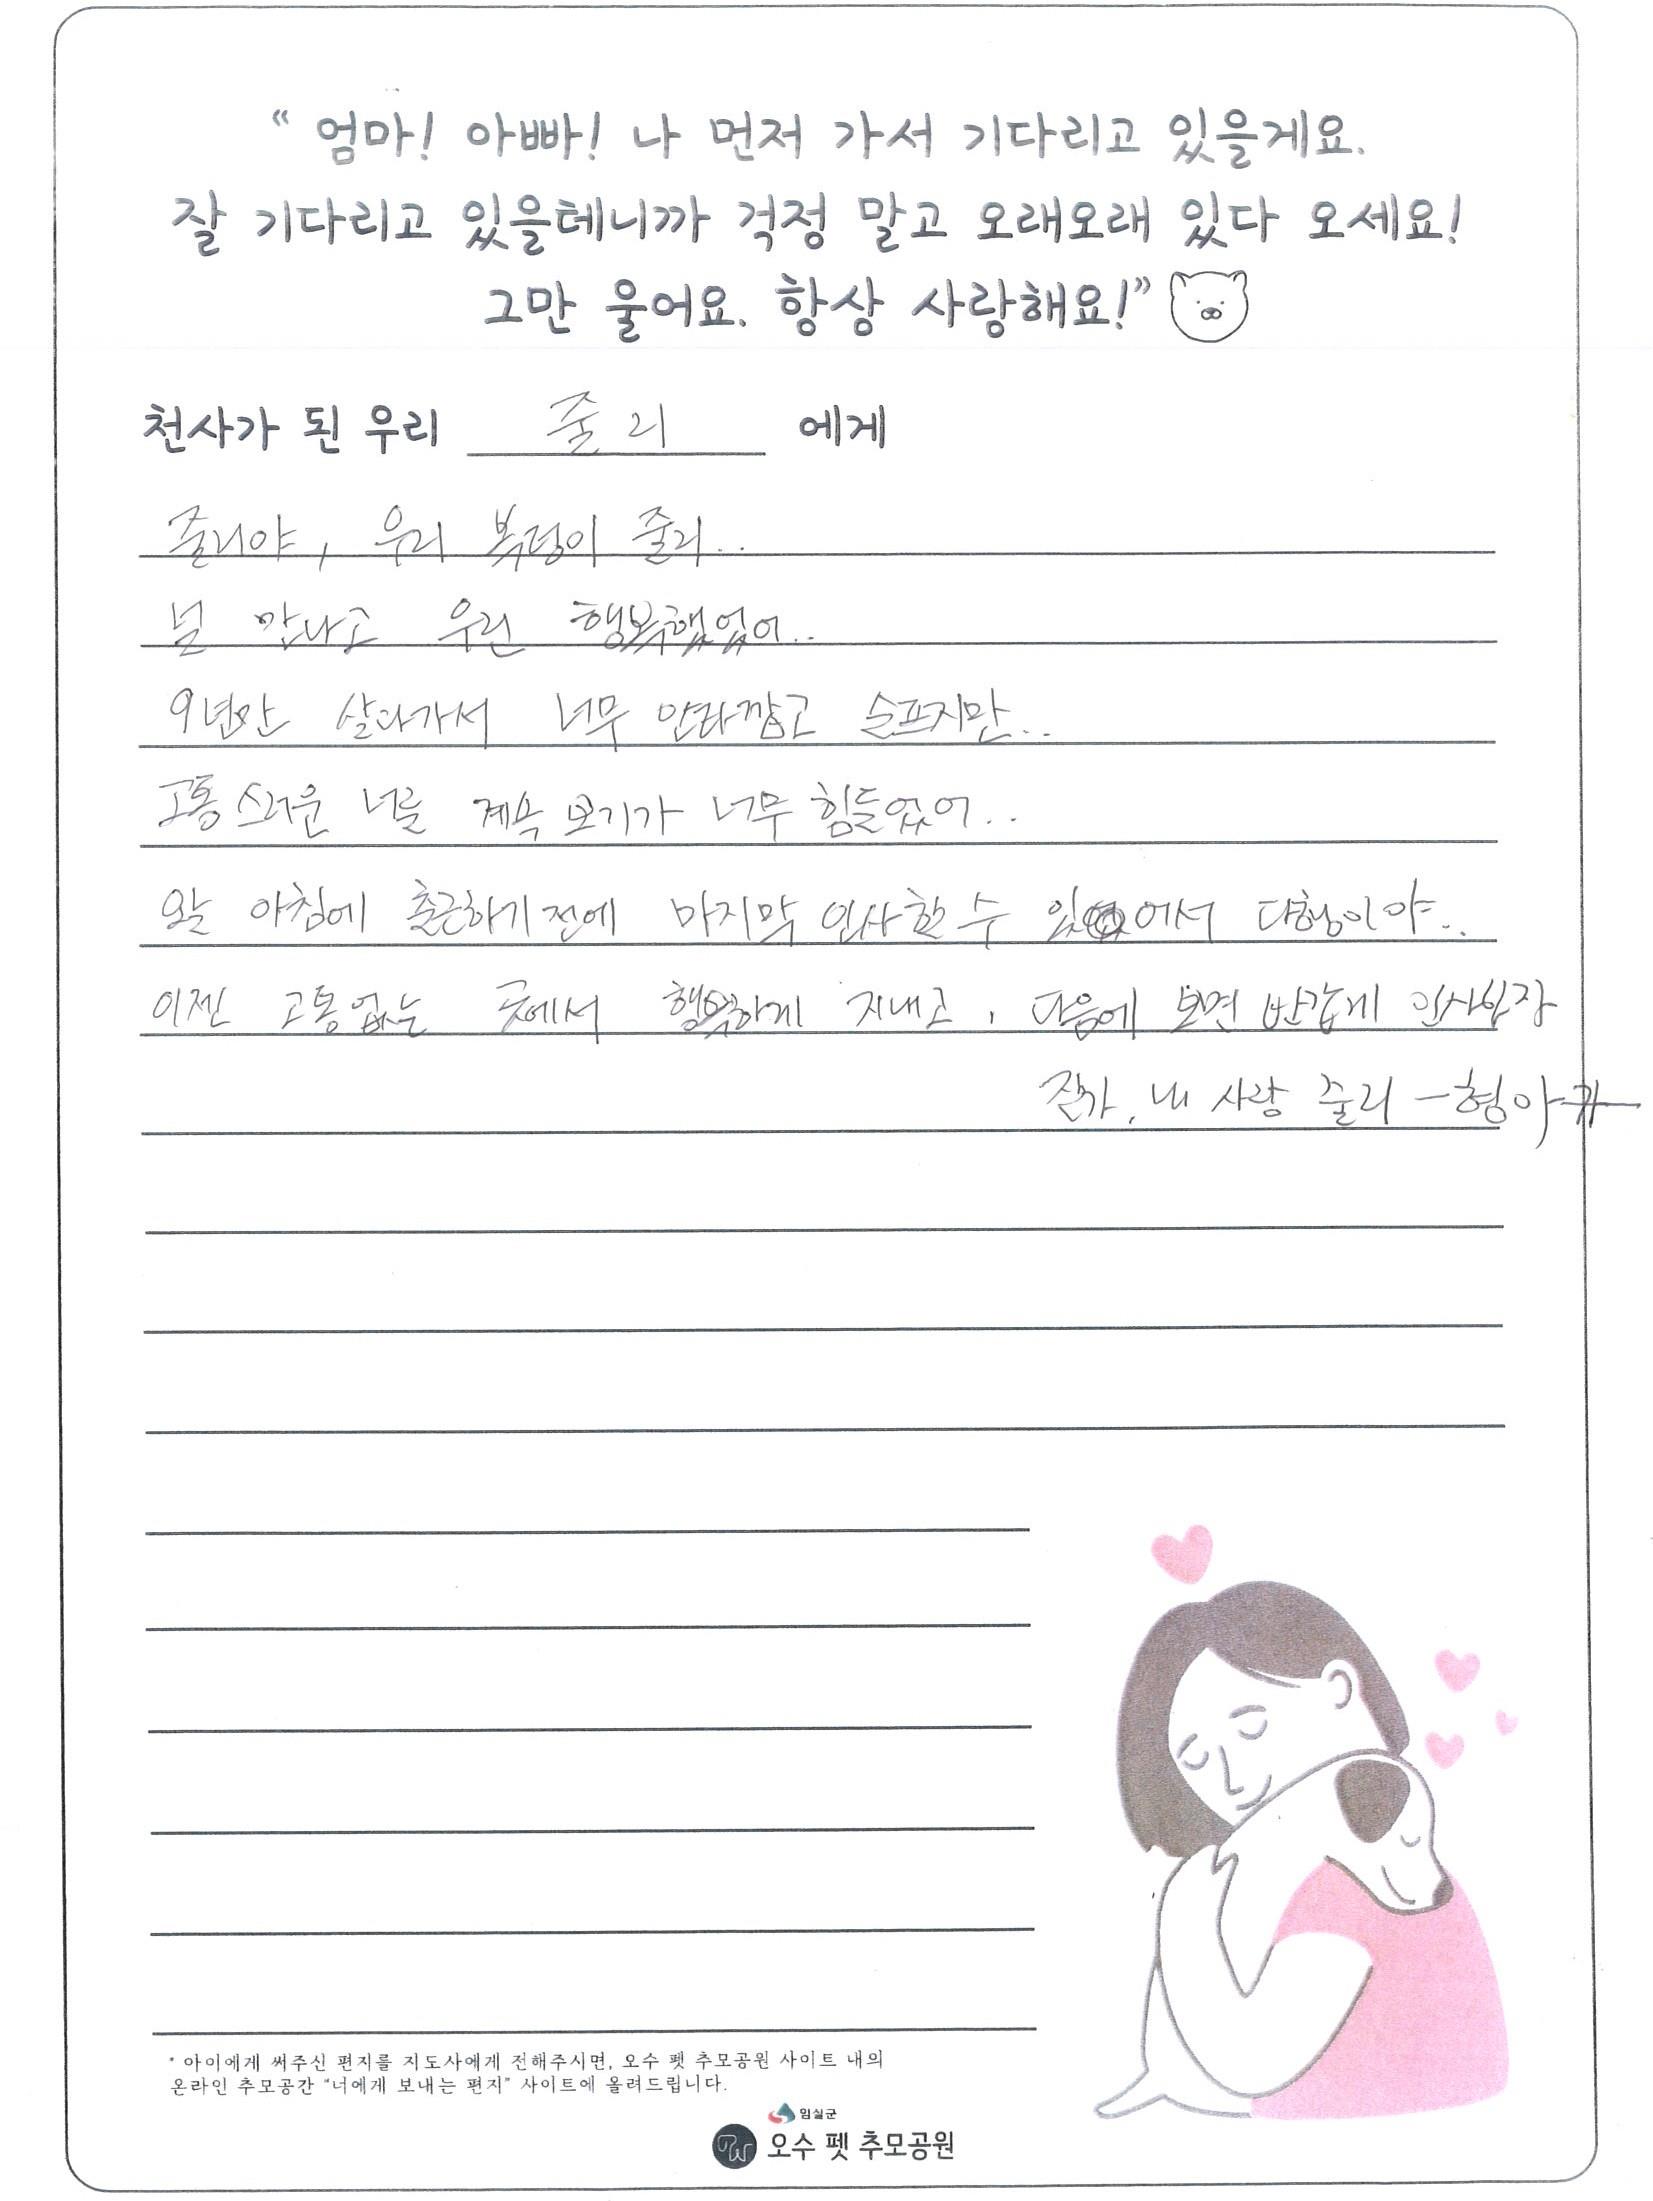 “ 엄마! 아빠! 나 먼저 가서 기다리고 있을게요.
잘 기다리고 있을테니까 걱정 말고 오래오래 있다 오세요!
그만 울어요. 항상 사랑해요!”
천사가 된 우리 줄리 에게
줄리야, 우리 복덩이 줄리..
널 만나고 우린 행복했었어..
9년만 살다가서 너무 안타깝고 슬프지만..
고통스러운 너를 계속 보기가 너무 힘들었어..
오늘 아침에 출근하기 전에 마지막 인사할 수 있어서 다행이야..
이젠 고통없는 곳에서 행복하게 지내고, 다음에 보면 반갑게 인사하자
잘가, 내 사랑 줄리 - 형아가 -
* 아이에게 써주신 편지를 지도사에게 전해주시면, 오수 펫 추모공원 사이트 내의
온라인 추모공간 “너에게 보내는 편지” 사이트에 올려드립니다.
임실군
오수 펫 추모공원